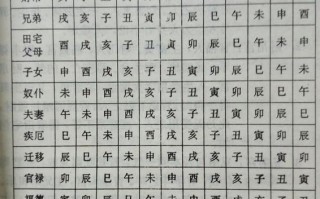 兄弟 戌 亥 子 丑 寅 卯 辰 巳 午 未 申 酉
田宅
父母 酉 戌 亥 子 丑 寅 卯 辰 巳 午 未 申
子女 申 酉 戌 亥 子 丑 寅 卯 辰 巳 午 未
奴仆 未 申 酉 戌 亥 子 丑 寅 卯 辰 巳 午
夫妻 午 未 申 酉 戌 亥 子 丑 寅 卯 辰 巳
疾厄 巳 午 未 申 酉 戌 亥 子 丑 寅 卯 辰
迁移 辰 巳 午 未 申 酉 戌 亥 子 丑 寅 卯
官禄 卯 辰 巳 午 未 申 酉 戌 亥 子 丑 寅